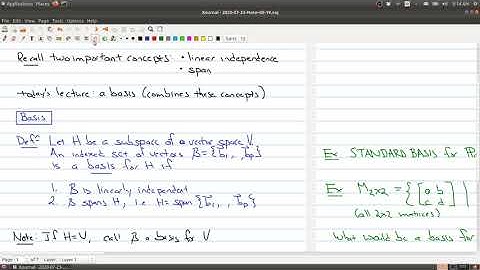 Applications Places
Xournal - 2020-07-23-Note-09-19.xoj
Recall two important concepts: • linear independence
• span
→ today's lecture: a basis (combines these concepts)
Basis
Defⁿ Let H be a subspace of a vector space V.
An indexed set of vectors B = {b₁, , bₚ}
is a basis for H if
1. B is linearly independent
2. B spans H, i.e. H = span {b₁, , bₚ}
Note: If H=V, call B a basis for V
Ex STANDARD BASIS for
Ex M₂ₓ₂ = { [a b
c d] |
(all 2x2 matrices)
What would be a basis for
Page 1 of 7 Layer